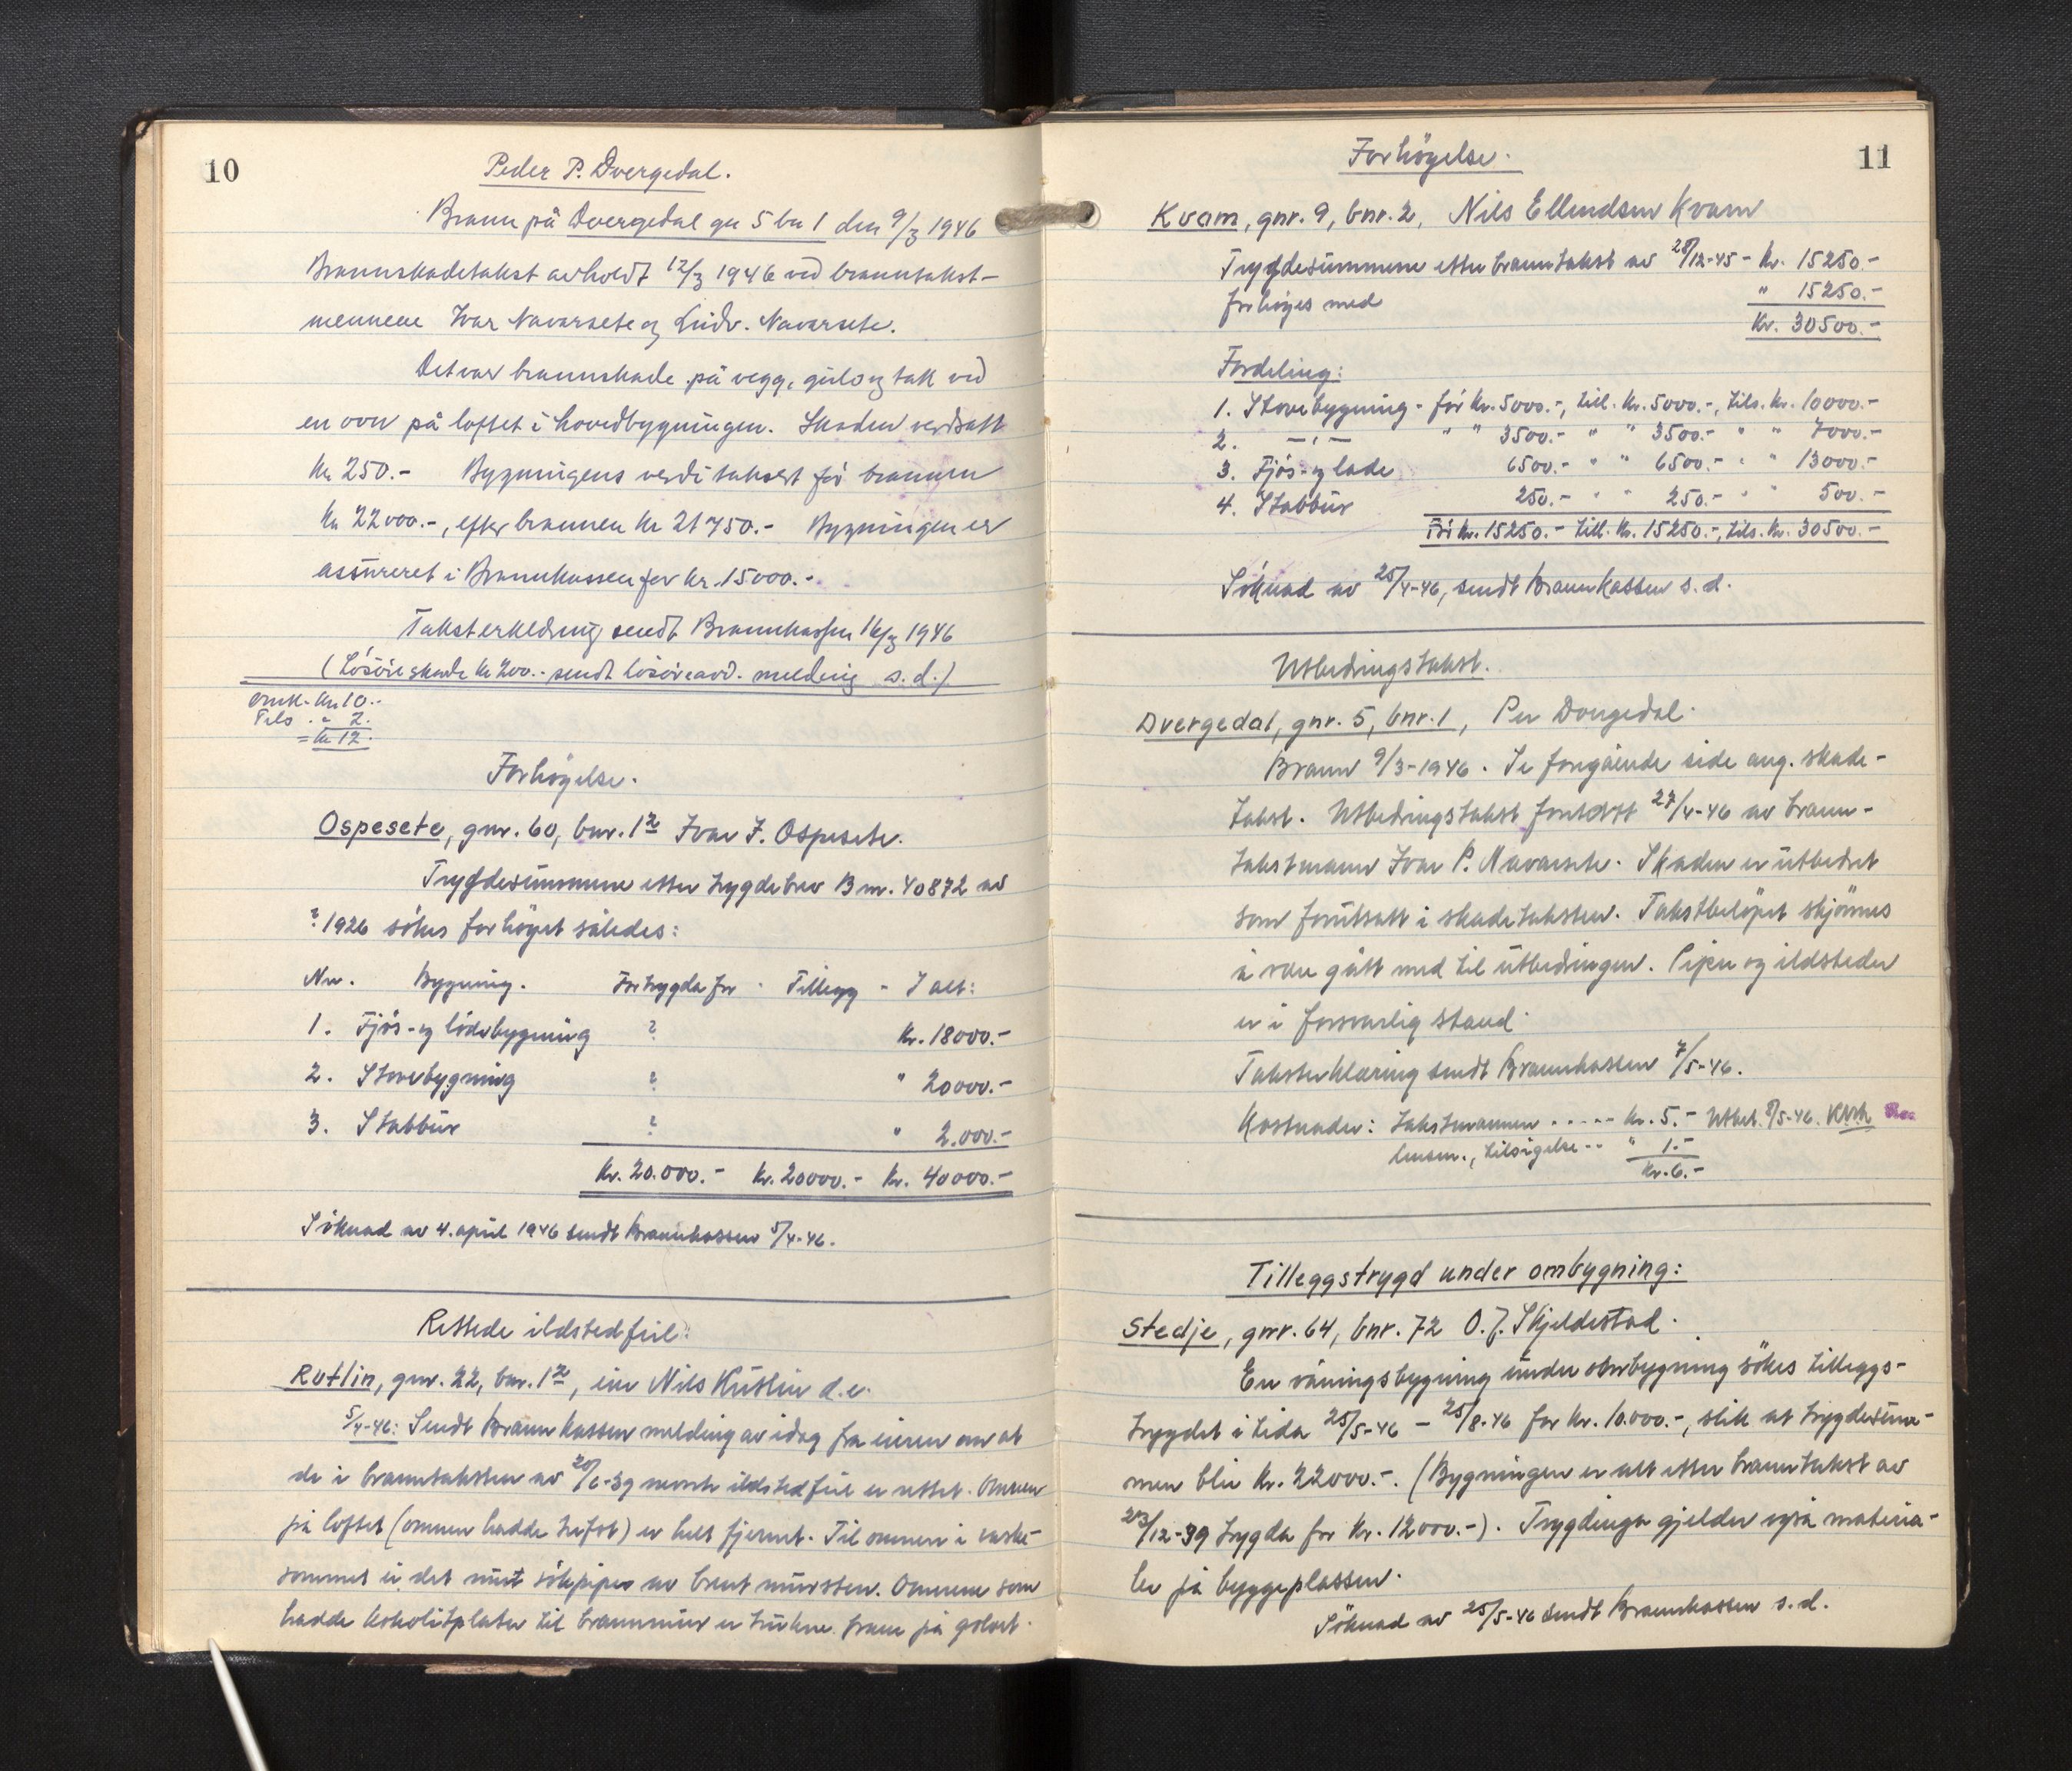 10
Peder P. Dvergedal.
Brann på Dvergedal gn 5 bn 1 den 9/3 1946
Brannskadetakst avholdt 12/3 1946 ved branntakst-
mennene Ivar Navarsete og Ludv. Navarsete.
Det var brannskade på vegg, gulv og tak ved
en ovn på loftet i hovedbygningen. Skaden verdsatt
kr 250.- Bygningens verdi taksert før brannen
kr 22000.-, efter brannen kr 21750.- Bygningen er
assureret i Brannkassen for kr. 15000.-
Taksterklæring sendt Brannkassen 16/3 1946
(Lösöreskade kr 200.- sendt lösöreavd. melding s.d.)
kr. 10.-
Tils. " 2.
= kr 12.
Forhögelse.
Ospesete, gnr. 60, bnr. 12 Ivar I. Ospesete.
Trygdesummene etter trygdebrev B nr. 40872 av
? 1926 sökes forhöget således:
Nr. Bygning. Fortrygda for - Tillegg - I alt:
1. Fjös- og lödebygning ? Kr. 18000.-
2. Stovebygning ? " 20000.-
3. Stabbur ? " 2.000.-
Kr. 20.000.- Kr. 20000.- Kr. 40000.-
Söknad av 4. april 1946 sendt Brannkassen 5/4-46.
Rettede ildstedfeil:
Rutlin, gnr. 22, bnr. 12, eier Nils Rutlin d.e.
5/4-46: Sendt Brannkassen melding av idag fra eieren om at
de i branntaksten av 20/6-39 nevnte ildstedfeil er rettet. Omnen
på loftet (omnen hadde trefot) er helt fjernet. Til omnen i vaske-
rommet er det murt pipe av brent murstein. Omnene som
hadde plater til brannmur er trukne fram på golvet.
11
Forhögelse.
Kvam, gnr. 9, bnr. 2, Nils Ellendsen Kvam
Trygdesummene etter branntakst av 28/12-45 - Kr. 15250.-
forhöges med " 15250.-
Kr. 30500.-
Fordeling:
1. Stovebygning - för kr. 5000.-, till. kr. 5000.-, tils. kr. 10000.-
2. -"- " " 3500.- " " 3500.- " " 7000.-
3. Fjös- og lade 6500.- " " 6500.- " " 13000.-
4. Stabbur 250.- " " 250.- " " 500.-
För kr. 15250.- till. kr. 15250.-, tils. kr. 30500.-
Söknad av 25/4-46, sendt Brannkassen s.d.
Utbedringstakst.
Dvergedal, gnr. 5, bnr. 1, Per Dvergedal.
Brann 9/3-1946. Se foregående side ang. skade-
takst. Utbedringstakst foretatt 27/4-46 av brann-
takstmann Ivar P. Navarsete. Skaden er utbedret
som forutsatt i skadetaksten. Takstbelöpet skjönnes
å være gått med til utbedringen. Pipen og ildsteder
er i forsvarlig stand.
Taksterklæring sendt Brannkassen 7/5-46.
Kostnader: takstmannen ..... kr. 5.- Utbet. 8/5-46.
lensm., tilsigelse -- " 1.-
Kr. 6.-
Tilleggstrygd under ombygning:
Stedje, gnr. 64, bnr. 72 O. J. Skjeldestad.
En våningsbygning under ombygning sökes tilleggs-
trygdet i tida 25/5-46 - 25/8-46 for kr. 10.000.-, slik at trygdesum-
men blir kr. 22000.-. (Bygningen er alt etter branntakst av
23/12-39 trygda for kr. 12000.-). Trygdinga gjelder også materia-
ler på byggeplassen.
Söknad av 25/5-46 sendt Brannkassen s.d.